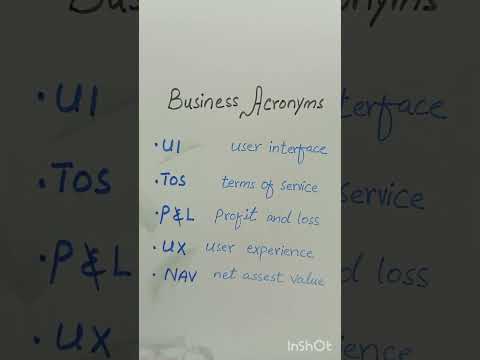 Business Acronyms
• UI user interface
• TOS terms of service
• P&L Profit and loss
• UX user experience
• NAV net assest value
InShOt